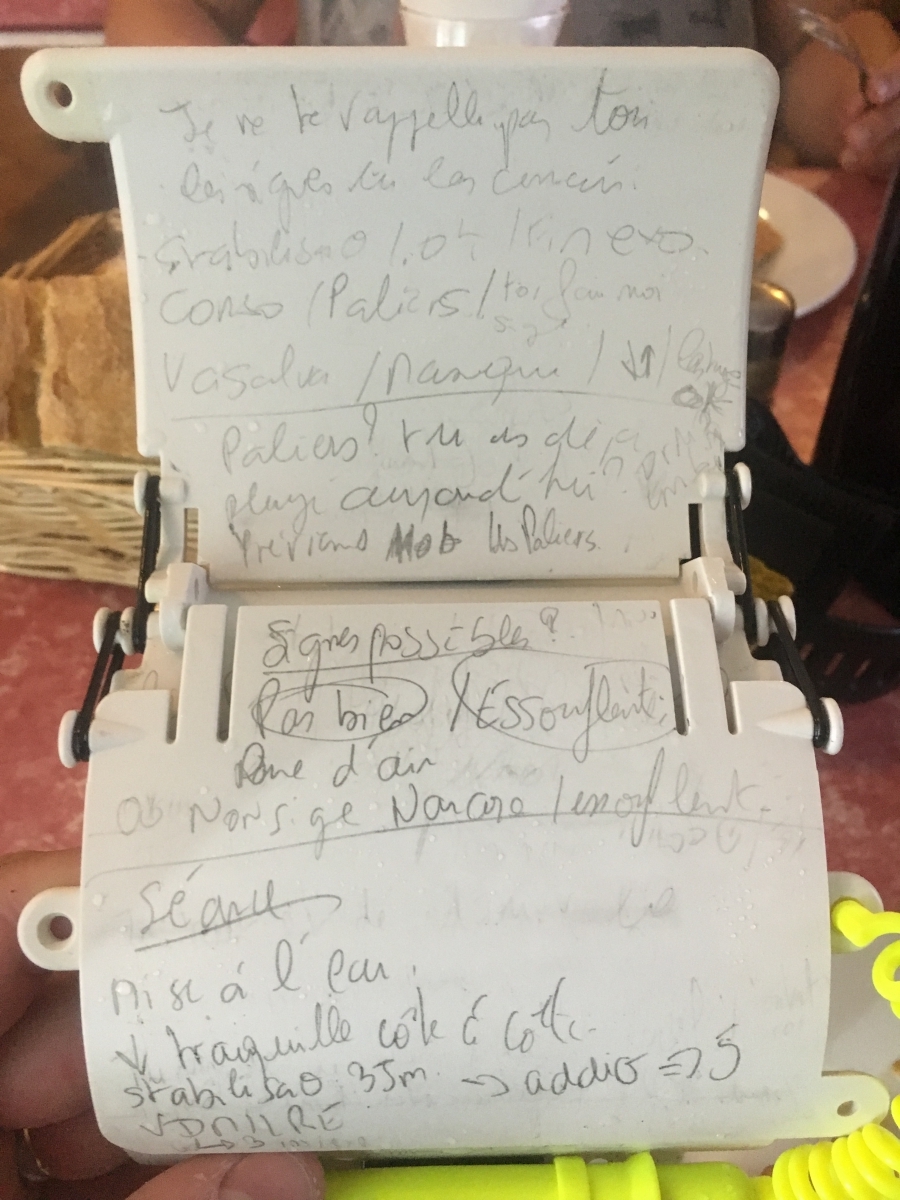 Je ne te rappelle pas tous
les signes tu les connais.
Stabilisa° / / Fin exo.
Conso / Paliers / toi fais moi
Vasalva / Masque / ↓↑ /
OK
Paliers? tu as déjà
plongé aujourd'hui
Préviens Mob Us Paliers.
Signes possibles?
Pas bien / Essouflent.
Pane d'air
Ou Narcose / essouflent.
Séance
Mise à l'eau.
↓ tranquille côte à côte.
stabilisa° 35m. → addio => 5